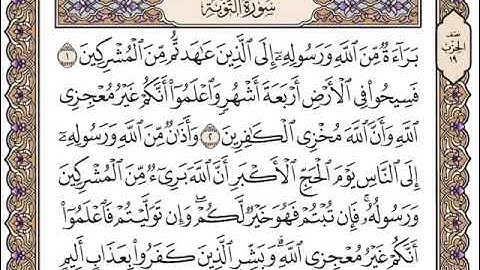 سُورَةُ التَّوْبَةِ
نصف
الحزب
١٩
بَرَآءَةٌ مِّنَ ٱللَّهِ وَرَسُولِهِۦٓ إِلَى ٱلَّذِينَ عَٰهَدتُّم مِّنَ ٱلْمُشْرِكِينَ ١
فَسِيحُوا۟ فِى ٱلْأَرْضِ أَرْبَعَةَ أَشْهُرٍ وَٱعْلَمُوٓا۟ أَنَّكُمْ غَيْرُ مُعْجِزِى
ٱللَّهِ وَأَنَّ ٱللَّهَ مُخْزِى ٱلْكَٰفِرِينَ ٢ وَأَذَٰنٌ مِّنَ ٱللَّهِ وَرَسُولِهِۦٓ
إِلَى ٱلنَّاسِ يَوْمَ ٱلْحَجِّ ٱلْأَكْبَرِ أَنَّ ٱللَّهَ بَرِىٓءٌ مِّنَ ٱلْمُشْرِكِينَ
وَرَسُولُهُۥ فَإِن تُبْتُمْ فَهُوَ خَيْرٌ لَّكُمْ وَإِن تَوَلَّيْتُمْ فَٱعْلَمُوٓا۟
أَنَّكُمْ غَيْرُ مُعْجِزِى ٱللَّهِ وَبَشِّرِ ٱلَّذِينَ كَفَرُوا۟ بِعَذَابٍ أَلِيمٍ